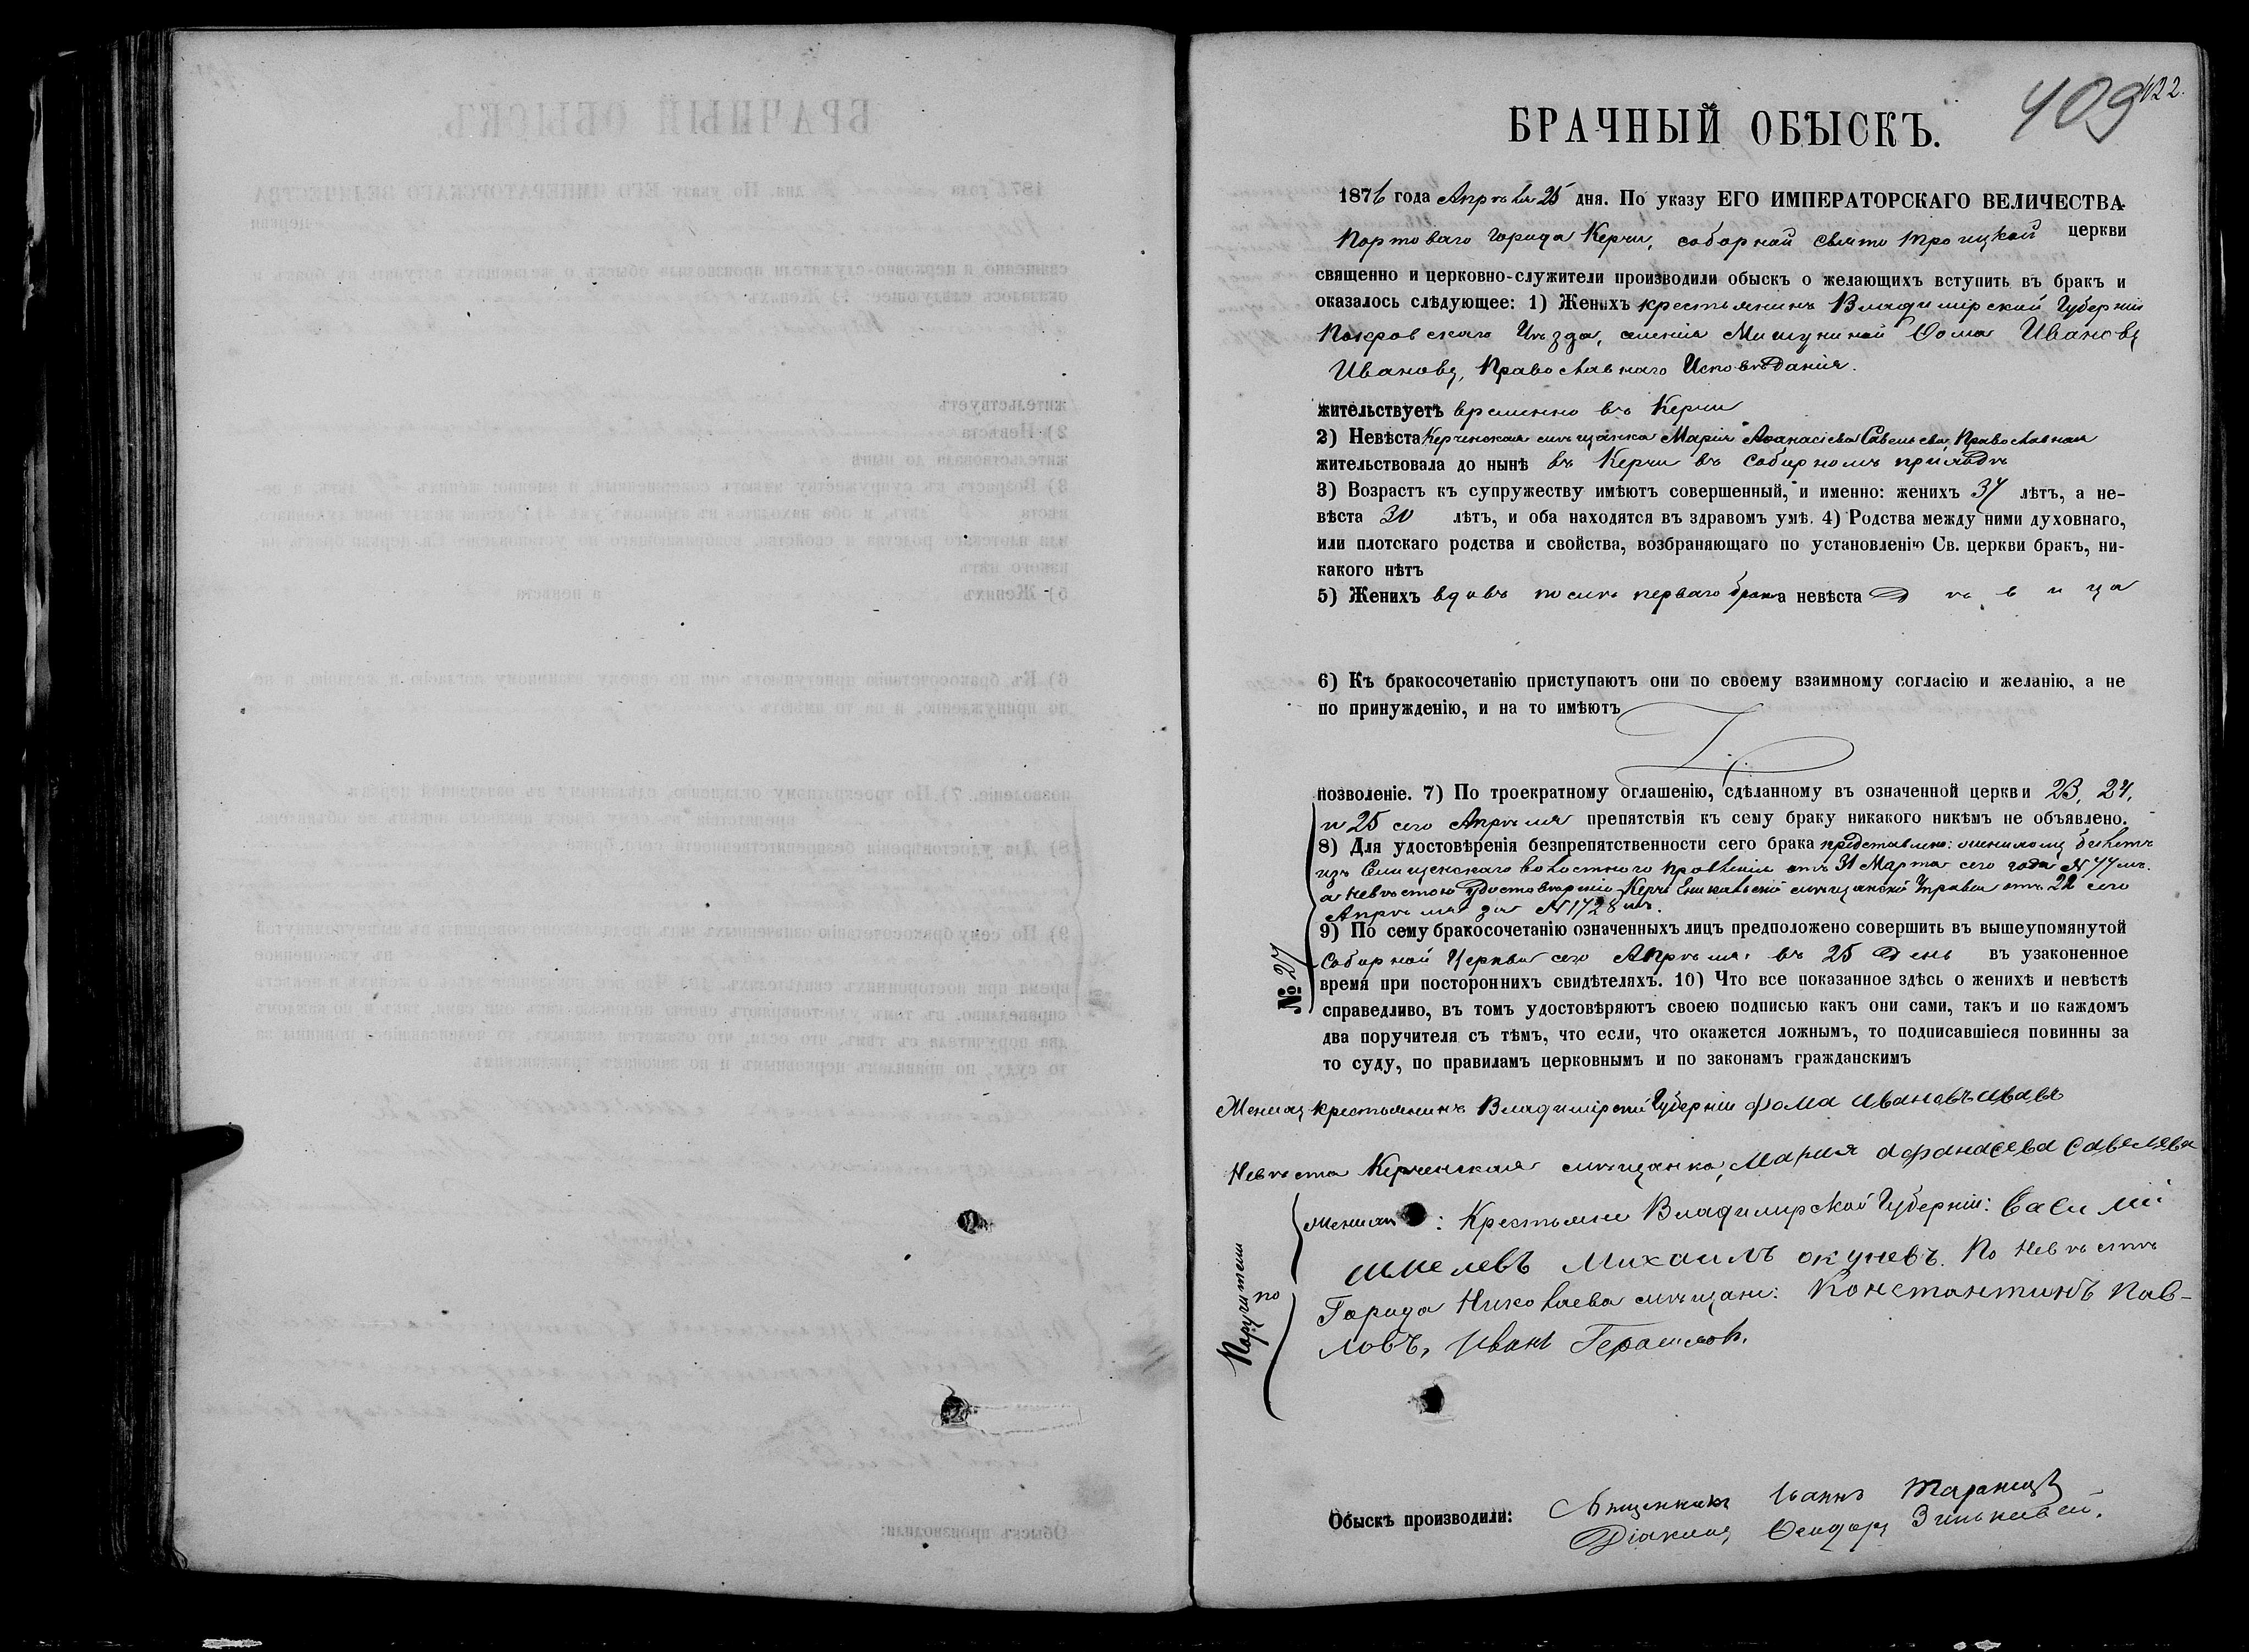 409
422.
БРАЧНЫЙ ОБЫСКЪ.
1876 года Апрѣля 25 дня. По указу ЕГО ИМПЕРАТОРСКАГО ВЕЛИЧЕСТВА
Портоваго города Керчи, соборной Свято Троицкой церкви
священно и церковно-служители производили обыскъ о желающихъ вступить въ бракъ и
оказалось слѣдующее: 1) Женихъ крестьянинъ Владимирской Губерніи
Покровскаго Уѣзда, селенія Мишуниной Ѳома Ивановъ
Ивановъ, Православнаго Исповѣданія.
жительствуетъ временно въ Керчи
2) Невѣста Керченская мѣщанка Марія Аѳанасіева Савельева, Православная
жительствовала до нынѣ въ Керчи въ Соборномъ приходѣ
3) Возрастъ къ супружеству имѣютъ совершенный, и именно: женихъ 37 лѣтъ, а не-
вѣста 30 лѣтъ, и оба находятся въ здравомъ умѣ. 4) Родства между ними духовнаго,
или плотскаго родства и свойства, возбраняющаго по установленію Св. церкви бракъ, ни-
какого нѣтъ
5) Женихъ вдовъ послѣ перваго брака а невѣста Дѣвица
6) Къ бракосочетанію приступаютъ они по своему взаимному согласію и желанію, а не
по принужденію, и на то имѣютъ
позволеніе. 7) По троекратному оглашенію, сдѣланному въ означенной церкви 23, 24,
и 25 сего Апрѣля препятствія къ сему браку никакого никѣмъ не объявлено.
8) Для удостовѣренія безпрепятственности сего брака представлено: женихомъ билетъ
изъ волостного Правленія отъ 31 Марта сего года N 77мъ.
а невѣстою удостовѣреніе Керчь Еникальской мѣщанской Управы отъ 22 сего
Апрѣля за N 1728мъ.
9) По сему бракосочетанію означенныхъ лицъ предположено совершить въ вышеупомянутой
Соборной Церкви сего Апрѣля въ 25 день въ узаконенное
время при постороннихъ свидѣтеляхъ. 10) Что все показанное здѣсь о женихѣ и невѣстѣ
справедливо, въ томъ удостовѣряютъ своею подписью какъ они сами, такъ и по каждомъ
два поручителя съ тѣмъ, что если, что окажется ложнымъ, то подписавшіеся повинны за
то суду, по правиламъ церковнымъ и по законамъ гражданскимъ
№ 27
Женихъ крестьянинъ Владимірской Губерніи фома Ивановъ
Невѣста Керченская мѣщанка, Мария афанасева Савелева
Поручители
по
женихѣ: Крестьяне Владимирской Губерніи: Василій
Шмелевъ Михаилъ окуневъ. По Невѣстѣ
Города Николаева мѣщане: Константинъ Пав-
ловъ, Иванъ Герасимов.
Обыскъ производили: Священникъ Іоаннъ
Діаконъ Ѳеодоръ